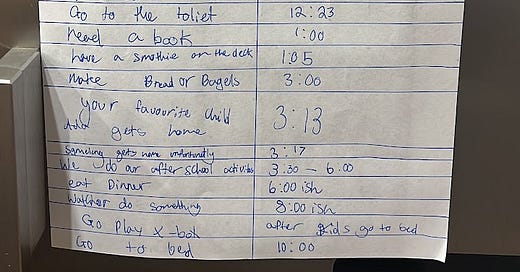 Go to the toliet 12:23
Read a book 1:00
have a smothie on the deck 1:05
make Bread or Bagels 3:00
your favourite child
gets home 3:13
gets home unfortunatly 3:17
We do our after school activites 3:30 - 6:00
eat Dinner 6:00 ish
do something 8:00 ish
Go play x-box after kids go to bed
Go to bed 10:00